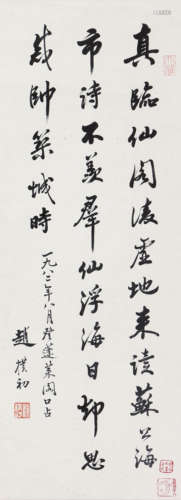 真臨仙阁凌虚地来读蘇公海
市诗不羡群仙浮海日却思
戚帥築城時
一九八二年八月登蓬莱阁口占
趙樸初